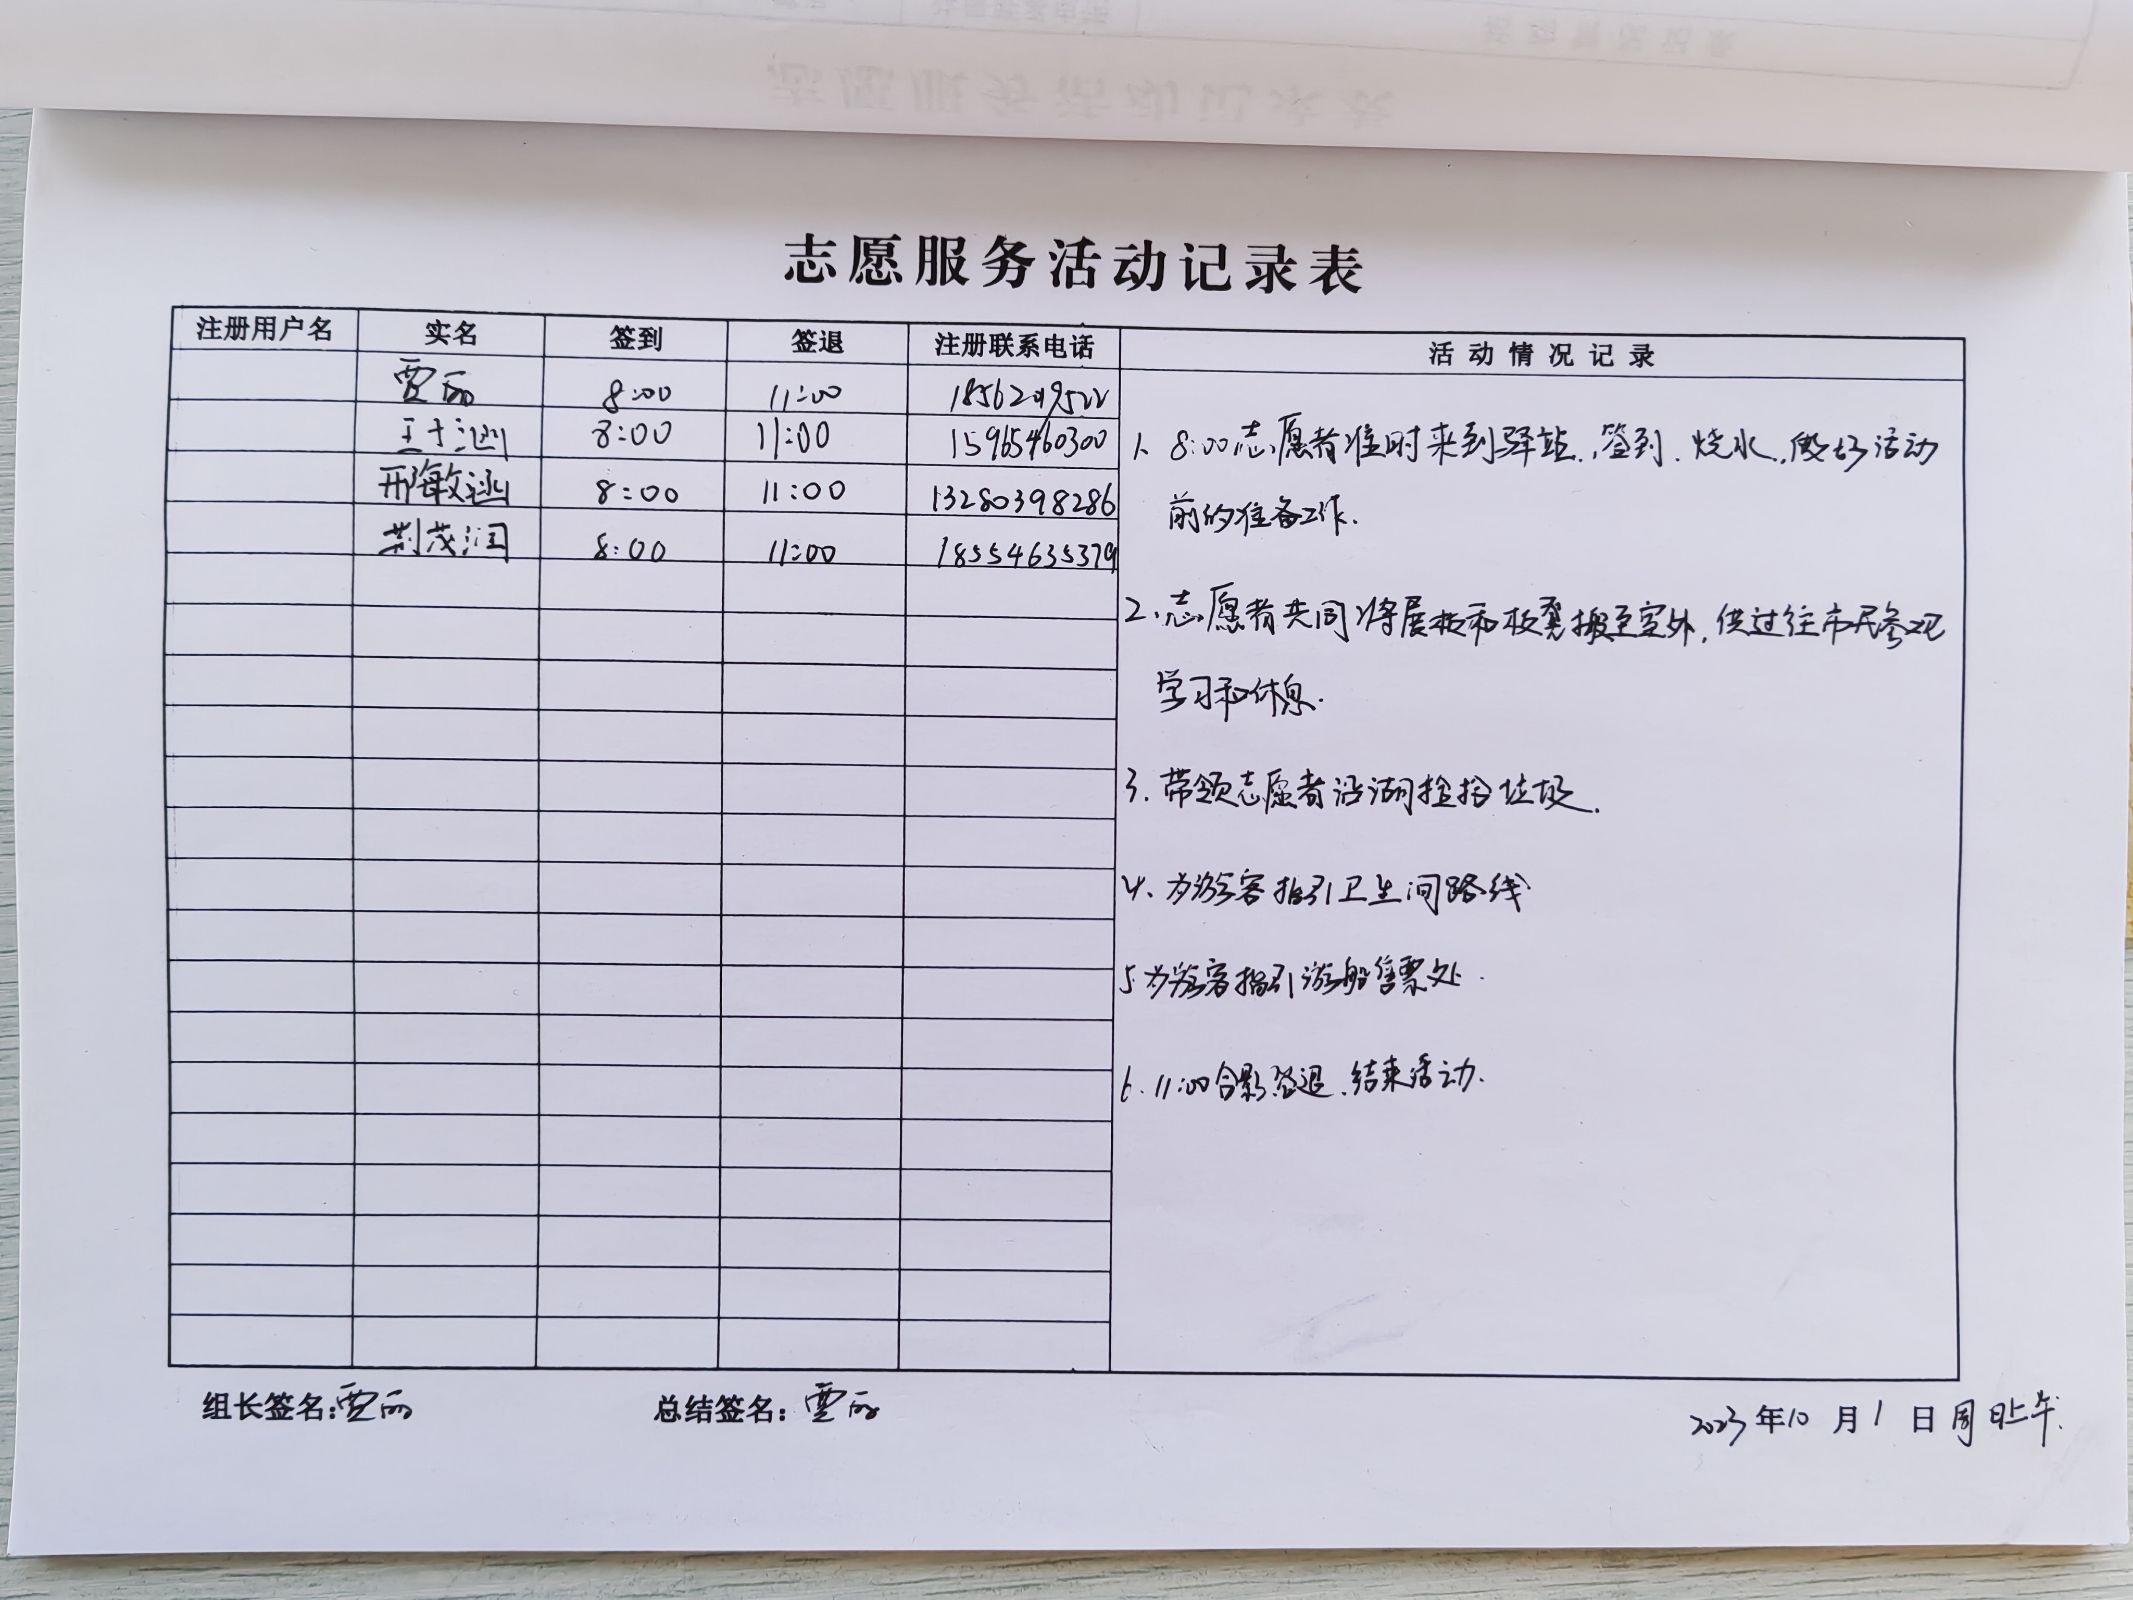 志愿服务活动记录表
注册用户名 实名 签到 签退 注册联系电话 活动情况记录
贾丽 8:00 11:00
王十涵 8:00 11:00 15965460300
邢敏涵 8:00 11:00 13280398286
荆茂润 8:00 11:00 18554635379
1、8:00志愿者准时来到驿站,签到、烧水,做好活动
前的准备工作.
2、志愿者共同将展板和板凳搬至室外,供过往市民参观
学习和休息.
3.带领志愿者沿湖捡拾垃圾.
4、为游客指引卫生间路线
5.为游客指引游船售票处.
6.11:00合影签退、结束活动.
组长签名:贾丽 总结签名:贾丽
2023年10月1日周日上午.